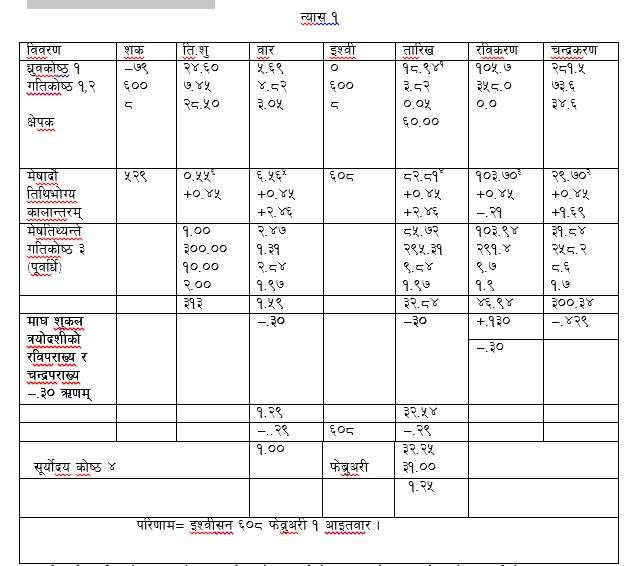 न्यास १
विवरण शक ति.शु वार इश्वी तारिख रविकरण चन्द्रकरण
ध्रुवकोष्ठ १ –७९ २४.६० ५.६९ ० १८.९४१ १०५.७ २८१.५
गतिकोष्ठ १,२ ६०० ७.४५ ४.८२ ६०० ३.८२ ३५८.० ७३.६
८ २८.५० ३.०५ ८ ०.०५ ०.० ३४.६
क्षेपक ६०.००
मेषादौ ५२९ ०.५५६ ६.५६५ ६०८ ८२.८१४ १०३.७०३ २९.७०२
तिथिभोग्य +०.४५ +०.४५ +०.४५ +०.४५ +०.४५
कालान्तरम् +२.४६ +२.४६ –.२१ +१.६९
मेषतिथ्यन्ते १.०० २.४७ ८५.७२ १०३.९४ ३१.८४
गतिकोष्ठ ३ ३००.०० १.३१ २९५.३१ २९१.४ २५८.२
(पूवर्धि) १०.०० २.८४ ९.८४ ९.७ ८.६
२.०० १.९७ १.९७ १.९ १.७
३१३ १.५९ ३२.८४ ४६.९४ ३००.३४
माघ शूकल –.३० –३० +.१३० –.४२९
त्रयोदशीको –.३०
रविपराख्य र
चन्द्रपराख्य
–.३० ऋणम्
१.२९ ३२.५४
–..२९ ६०८ –.२९
१.०० ३२.२५
सूर्योदय कोष्ठ ४ फेब्रुअरी ३१.००
१.२५
परिणाम= इश्वीसन ६०८ फेब्रुअरी १ आइतवार ।